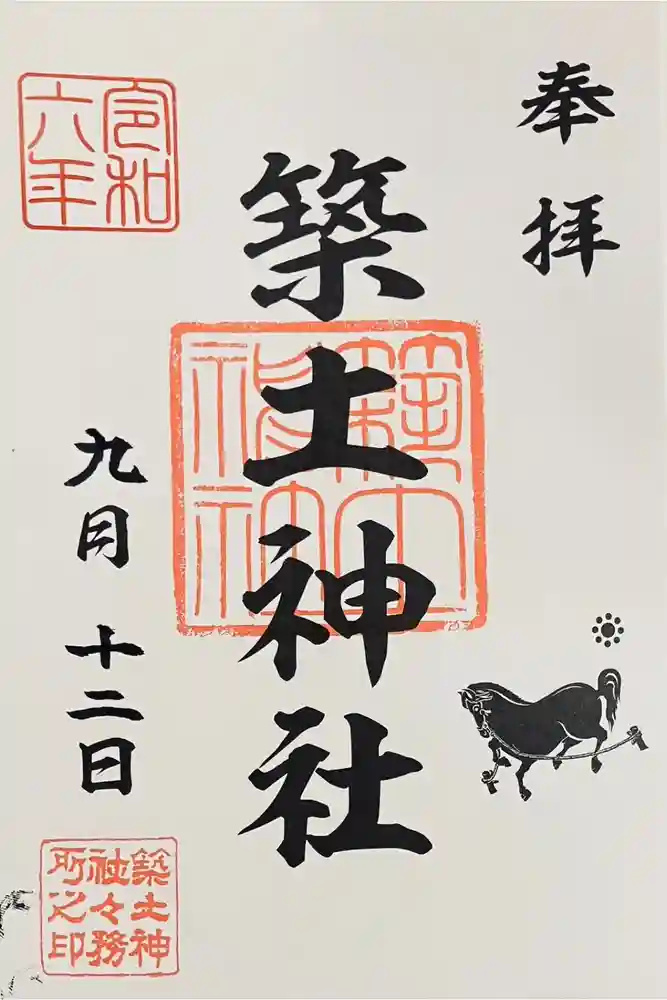 奉拝
築土神社
築土神社
令和
六年
九月十二日
築土神
社々務
所之印